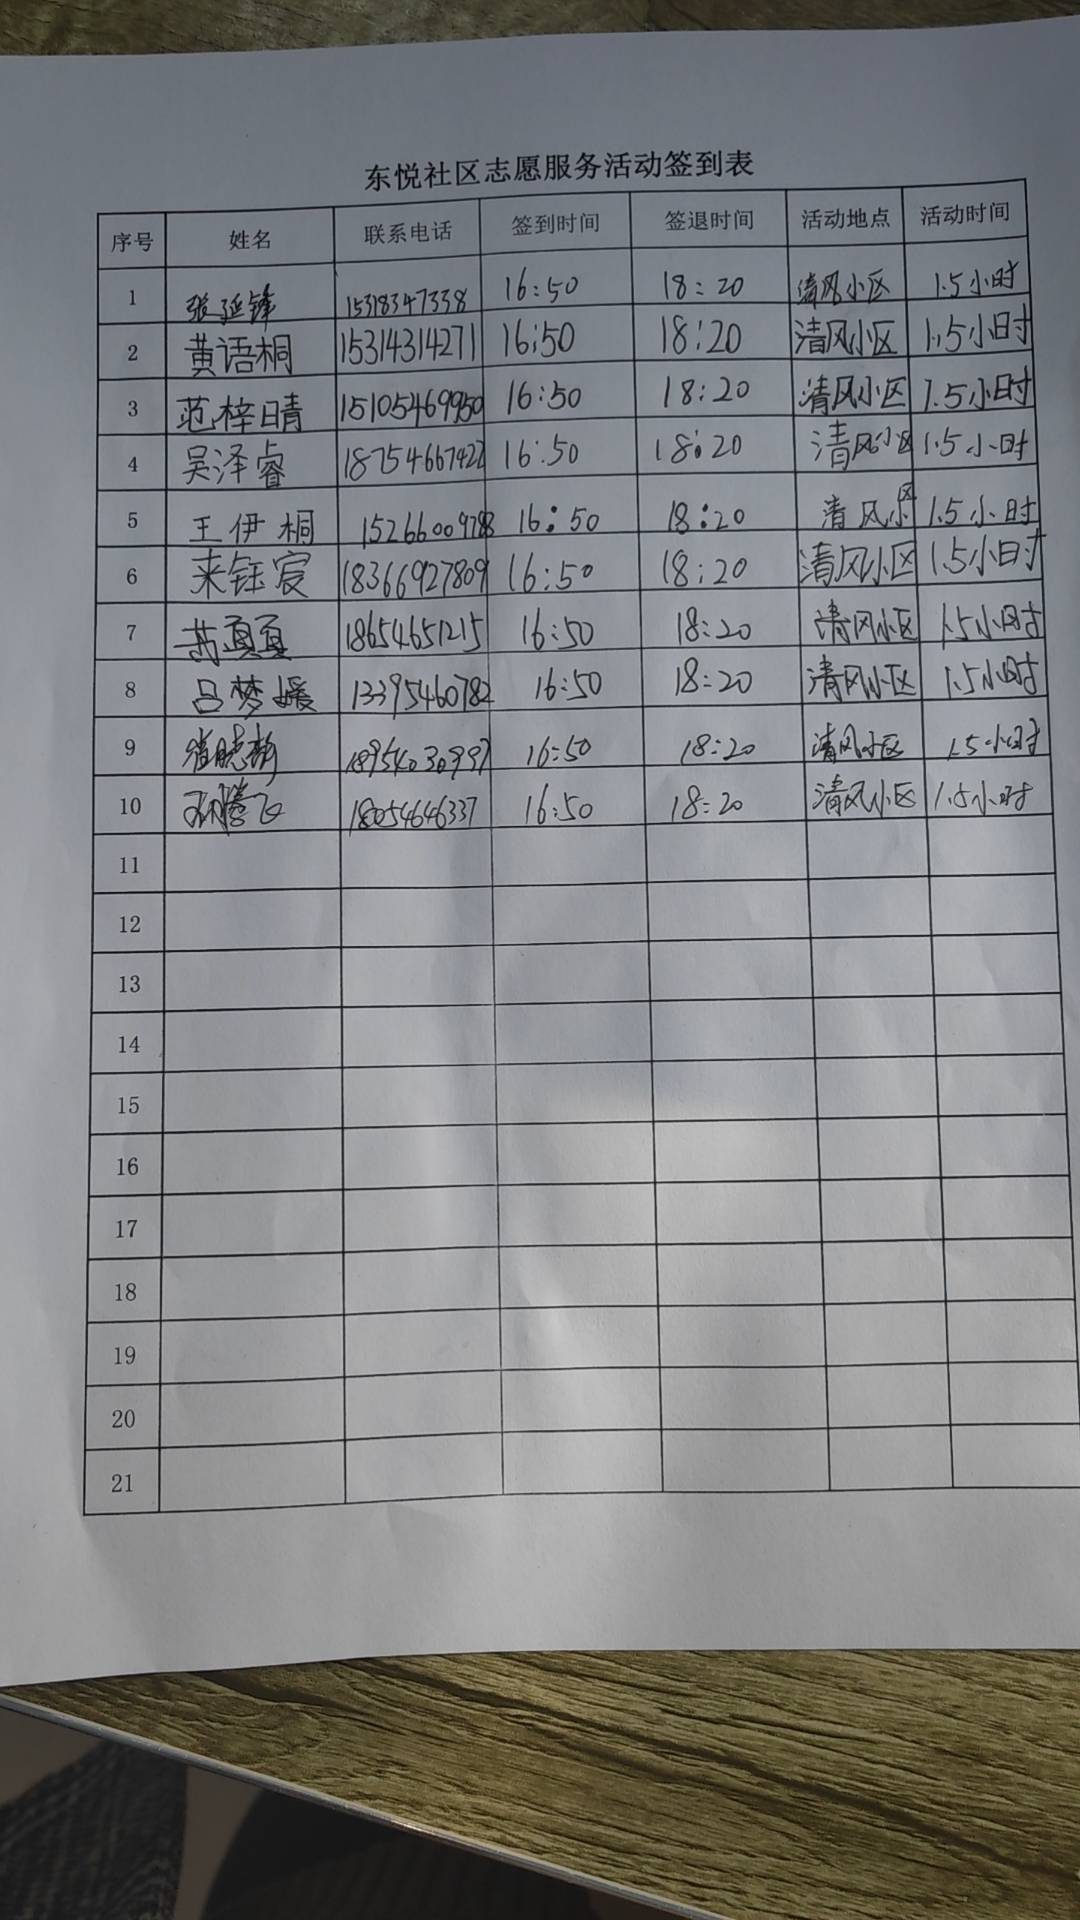 东悦社区志愿服务活动签到表
序号 姓名 联系电话 签到时间 签退时间 活动地点 活动时间
1 张延锋 15318347338 16:50 18:20 清风小区 1.5小时
2 黄语桐 15314314271 16:50 18:20 清风小区 1.5小时
3 范梓晴 15105469950 16:50 18:20 清风小区 1.5小时
4 吴泽睿 18754667422 16:50 18:20 清风小区 1.5小时
5 王伊桐 15266009788 16:50 18:20 清风小区 1.5小时
6 来钰宸 18366927809 16:50 18:20 清风小区 1.5小时
7 18654651215 16:50 18:20 清风小区 1.5小时
8 吕梦媛 13395460782 16:50 18:20 清风小区 1.5小时
9 崔晓静 16:50 18:20 清风小区 1.5小时
10 孙腾飞 18054646337 16:50 18:20 清风小区 1.5小时
11
12
13
14
15
16
17
18
19
20
21